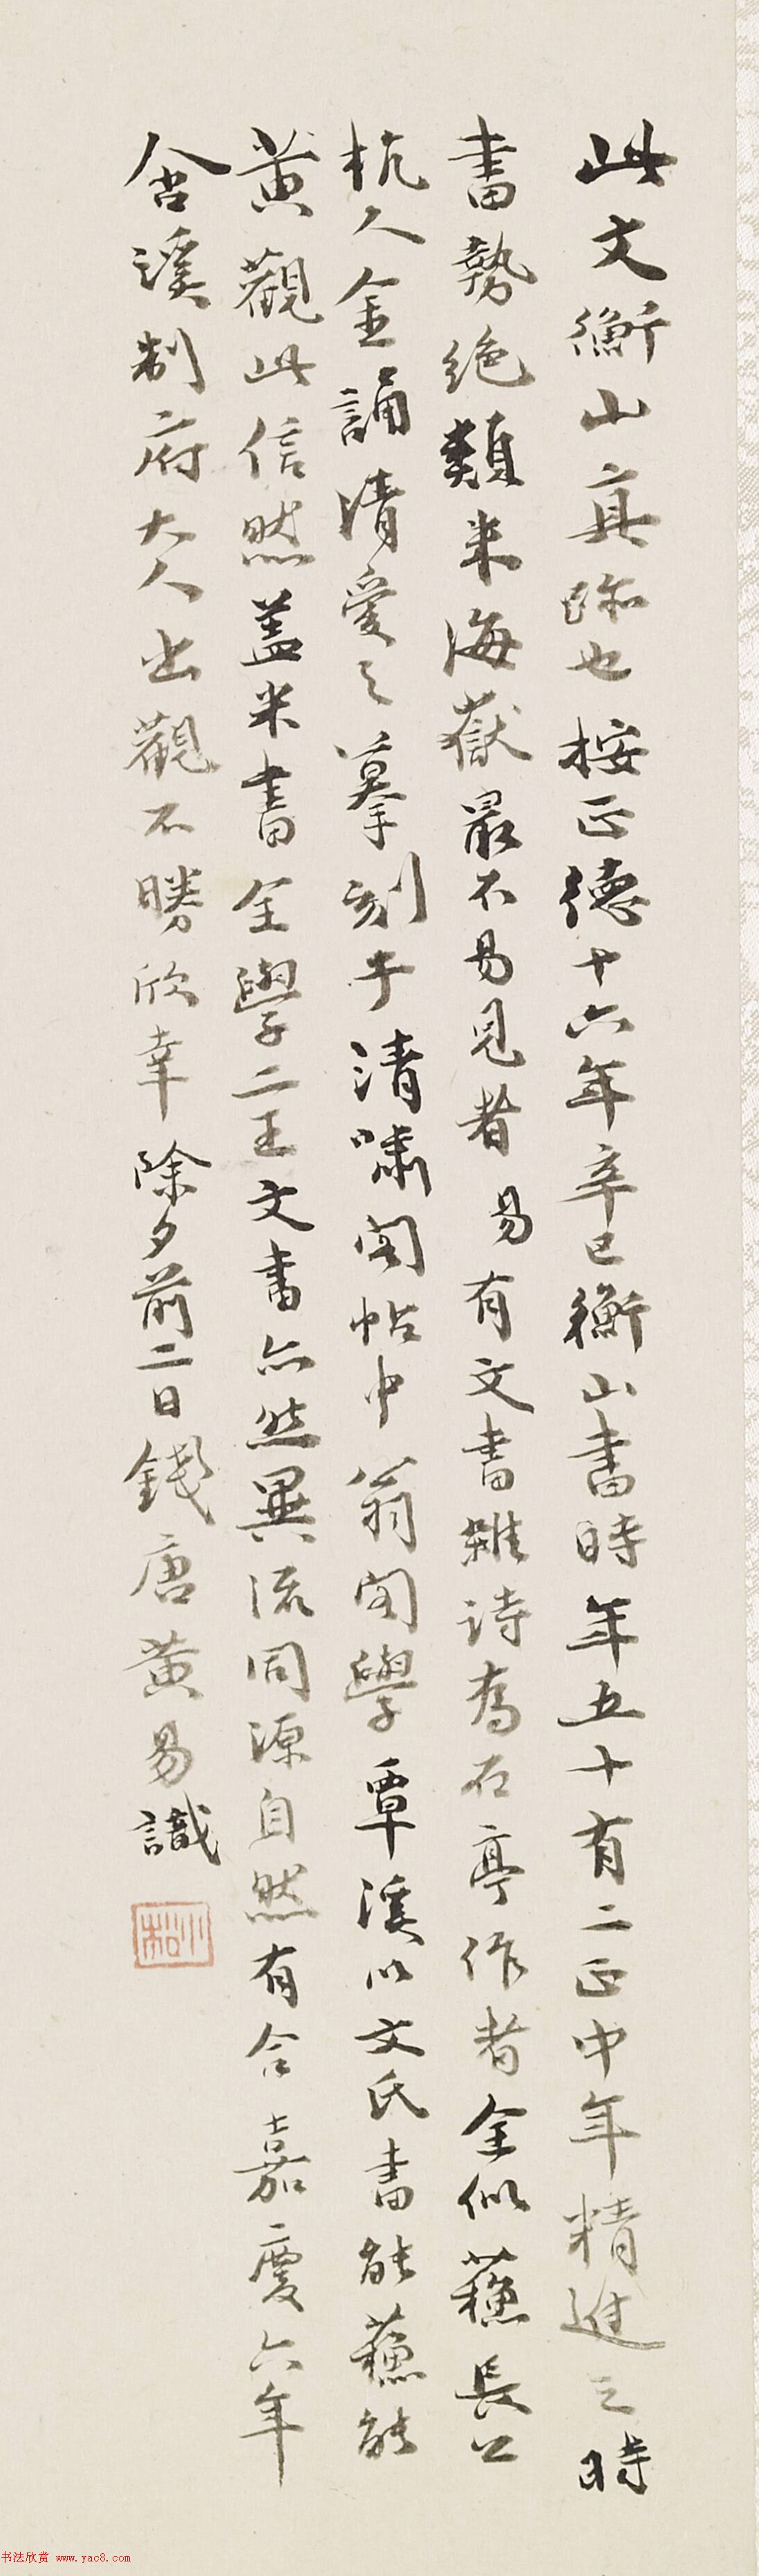 此文衡山真跡也按正德十六年辛巳衡山書時年五十有二正中年精進之時
書勢絶類米海嶽最不易見者易有文書雜詩為石亭作者全似蘇長公
杭人金誦清愛之摹刻于清嘯閣帖中翁閣學覃溪以文氏書能蘇能
黄觀此信然蓋米書全學二王文書亦然異流同源自然有合嘉慶六年
含溪制府大人出觀不勝欣幸除夕前二日錢唐黄易識
小松
书法欣赏 www.yac8.com